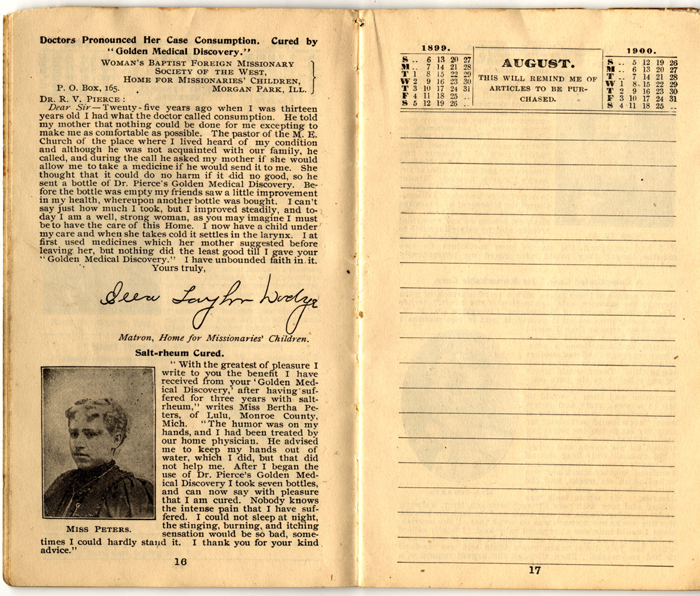 Doctors Pronounced Her Case Consumption. Cured by
"Golden Medical Discovery."
WOMAN'S BAPTIST FOREIGN MISSIONARY
SOCIETY OF THE WEST,
HOME FOR MISSIONARIES' CHILDREN,
P. O. BOX, 165. MORGAN PARK, ILL.
DR. R. V. PIERCE :
Dear Sir—Twenty-five years ago when I was thirteen
years old I had what the doctor called consumption. He told
my mother that nothing could be done for me excepting to
make me as comfortable as possible. The pastor of the M. E.
Church of the place where I lived heard of my condition
and although he was not acquainted with our family, he
called, and during the call he asked my mother if she would
allow me to take a medicine if he would send it to me. She
thought that it could do no harm if it did no good, so he
sent a bottle of Dr. Pierce's Golden Medical Discovery. Be-
fore the bottle was empty my friends saw a little improvement
in my health, whereupon another bottle was bought. I can't
say just how much I took, but I improved steadily, and to-
day I am a well, strong woman, as you may imagine I must
be to have the care of this Home. I now have a child under
my care and when she takes cold it settles in the larynx. I at
first used medicines which her mother suggested before
leaving her, but nothing did the least good till I gave your
"Golden Medical Discovery." I have unbounded faith in it.
Yours truly,
Taylor
Matron, Home for Missionaries' Children.
Salt-rheum Cured.
"With the greatest of pleasure I
write to you the benefit I have
received from your 'Golden Med-
ical Discovery,' after having suf-
fered for three years with salt-
rheum," writes Miss Bertha Pe-
ters, of Lulu, Monroe County,
Mich. "The humor was on my
hands, and I had been treated by
our home physician. He advised
me to keep my hands out of
water, which I did, but that did
not help me. After I began the
use of Dr. Pierce's Golden Med-
ical Discovery I took seven bottles,
and can now say with pleasure
that I am cured. Nobody knows
the intense pain that I have suf-
fered. I could not sleep at night,
the stinging, burning, and itching
sensation would be so bad, some-
times I could hardly stand it. I thank you for your kind
advice."
MISS PETERS.
16
1899.
S .. 6 13 20 27
M .. 7 14 21 28
T 1 8 15 22 29
W 2 9 16 23 30
T 3 10 17 24 31
F 4 11 18 25 ..
S 5 12 19 26 ..
AUGUST.
THIS WILL REMIND ME OF
ARTICLES TO BE PUR-
CHASED.
1900.
S .. 5 12 19 26
M .. 6 13 20 27
T .. 7 14 21 28
W 1 8 15 22 29
T 2 9 16 23 30
F 3 10 17 24 31
S 4 11 18 25 ..
17